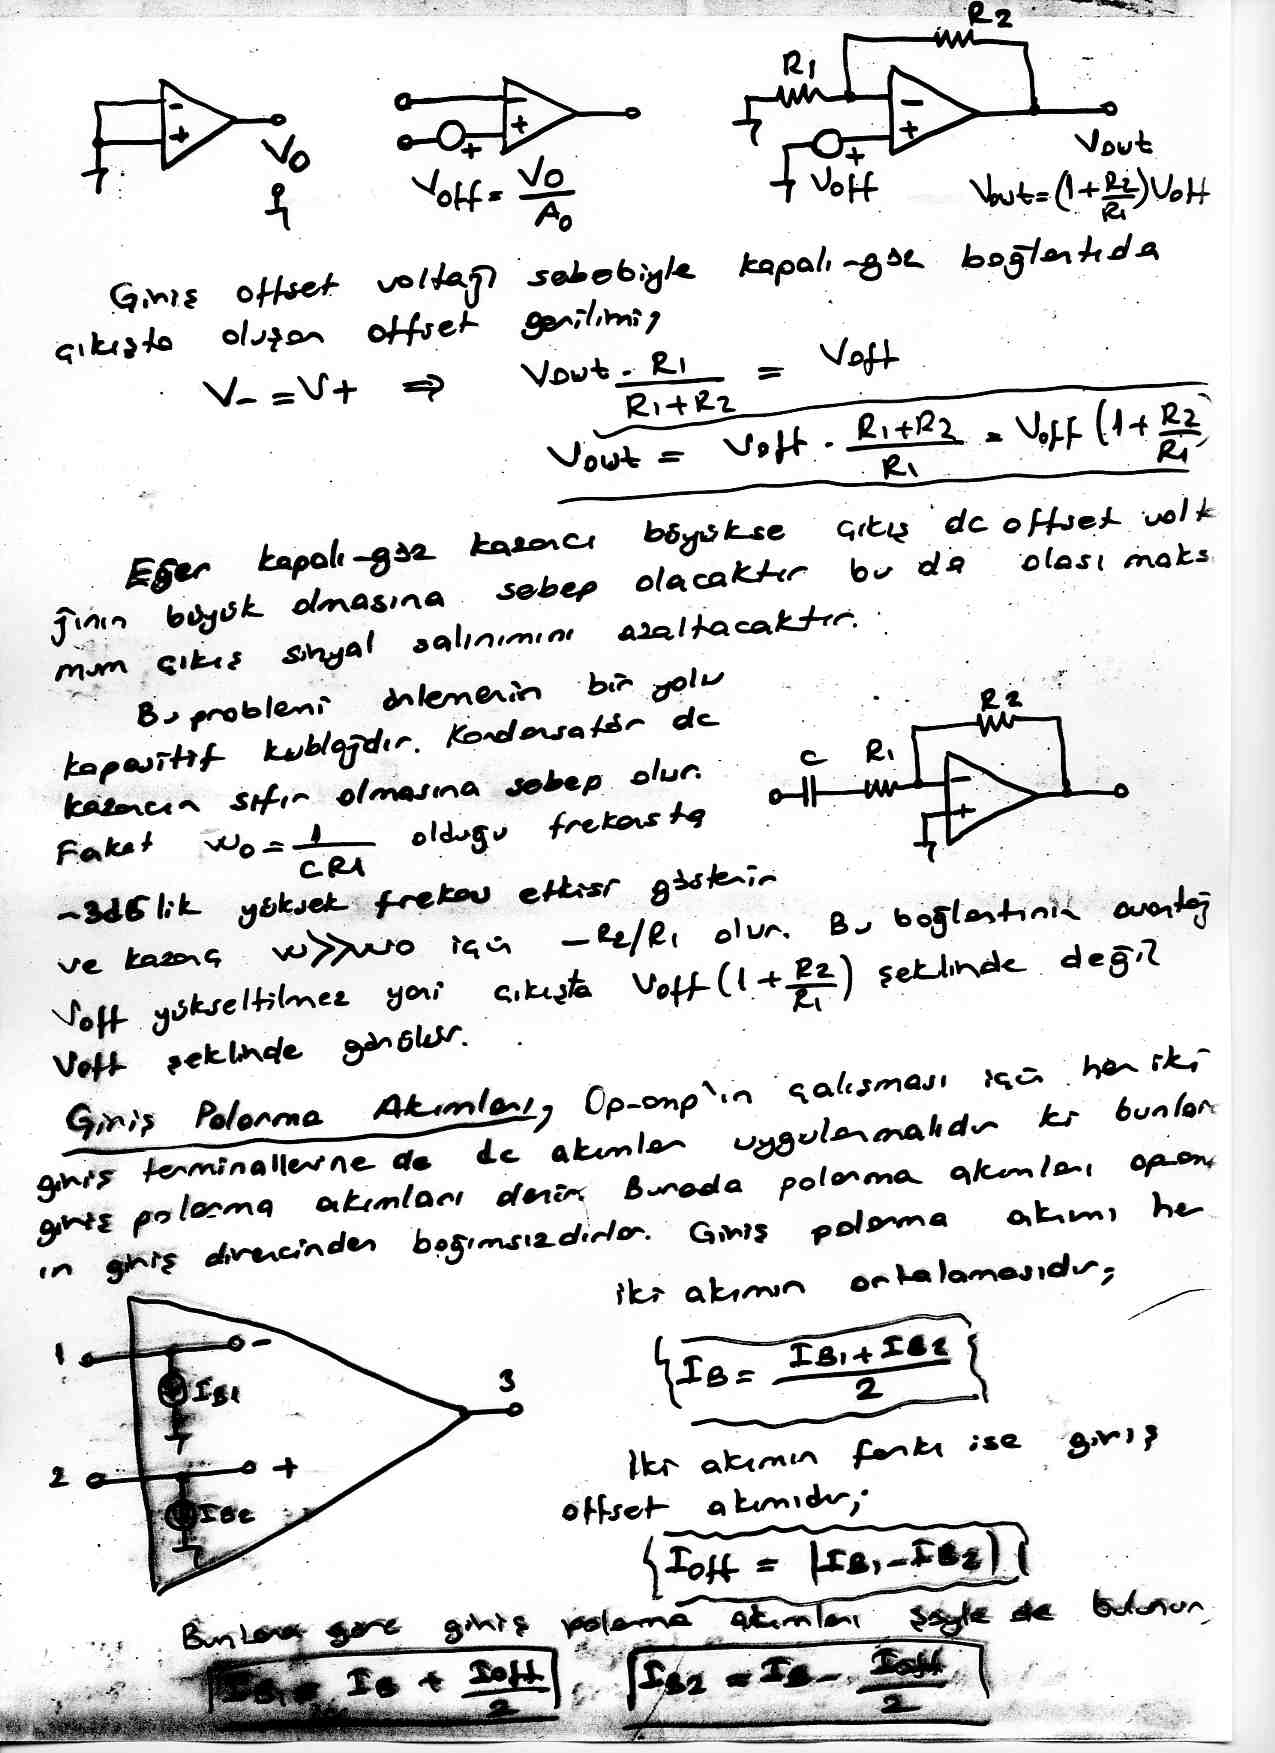 R2
R1
- + Vo
- + +
Voff = Vo/Ao
- + +
Voff
Vout
Vout = (1 + R2/R1) Voff
Giriş offset voltağı sebebiyle kapalı-göz bağlantıda
çıkışta oluşan offset gerilimi,
V- = V+ ⇒ Vout . R1/(R1+R2) = Voff
Vout = Voff . (R1+R2)/R1 = Voff (1 + R2/R1)
Eğer kapalı-göz kazancı büyükse çıkış dc offset volt
ğının büyük olmasına sebep olacaktır bu da olası maks
mum çıkış sinyal salınımını azaltacaktır.
Bu problemi önlemenin bir yolu
kapasitif kublajdır. Kondansatör dc
kazancın sıfır olmasına sebep olur.
Fakat wo = 1/CR1 olduğu frekansta
C R1 R2 - +
-3dB lik yüksek frekans etkisi gösterir
ve kazanç w>>wo için -R2/R1 olur. Bu bağlantının avantaj
Voff yükseltilmez yani çıkışta Voff (1 + R2/R1) şeklinde değil
Voff şeklinde görülür.
Giriş Polarma Akımları, Op-amp'ın çalışması için her iki
giriş terminallerine de dc akımlar uygulanmalıdır ki bunlar
giriş polarma akımları denir. Burada polarma akımları opam
ın giriş direncinden bağımsızdırlar. Giriş polarma akımı her
iki akımın ortalamasıdır;
1 - IB1
2 + IB2
3
IB = (IB1 + IB2)/2
İki akımın farkı ise giriş
offset akımıdır;
Ioff = |IB1 - IB2|
Bunlara göre giriş polarma akımları şöyle de bulunur,
IB1 = IB + Ioff/2 IB2 = IB - Ioff/2